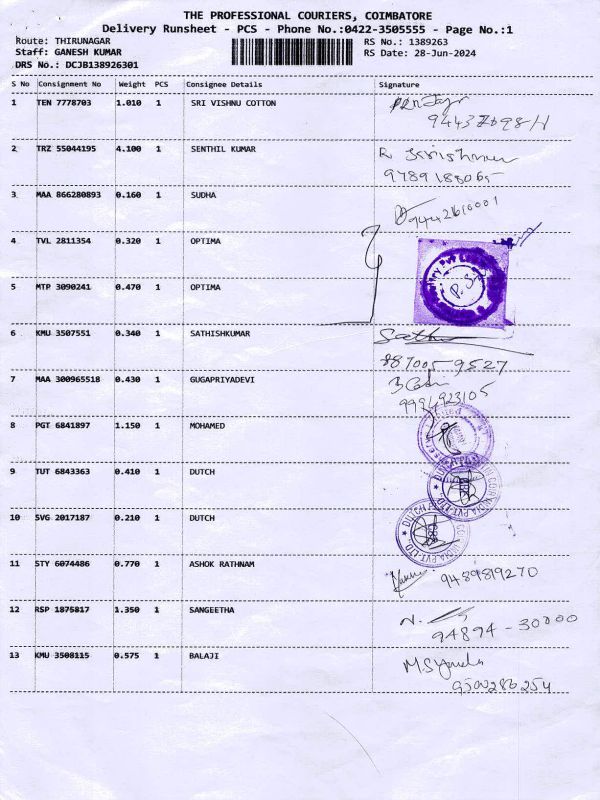 THE PROFESSIONAL COURIERS, COIMBATORE
Delivery Runsheet - PCS - Phone No.:0422-3505555 - Page No.:1
Route: THIRUNAGAR RS No.: 1389263
Staff: GANESH KUMAR RS Date: 28-Jun-2024
DRS No.: DCJB138926301
S No Consignment No Weight PCS Consignee Details Signature
1 TEN 7778703 1.010 1 SRI VISHNU COTTON
2 TRZ 55044195 4.100 1 SENTHIL KUMAR
3 MAA 866280893 0.160 1 SUDHA
9442610001
4 TVL 2811354 0.320 1 OPTIMA
5 MTP 3090241 0.470 1 OPTIMA
6 KMU 3507551 0.340 1 SATHISHKUMAR
887005 9527
7 MAA 300965518 0.430 1 GUGAPRIYADEVI
9994923105
8 PGT 6841897 1.150 1 MOHAMED
9 TUT 6843363 0.410 1 DUTCH
10 SVG 2017187 0.210 1 DUTCH
11 STY 6074486 0.770 1 ASHOK RATHNAM
9489819270
12 RSP 1875817 1.350 1 SANGEETHA
94894-30000
13 KMU 3508115 0.575 1 BALAJI
9500286254